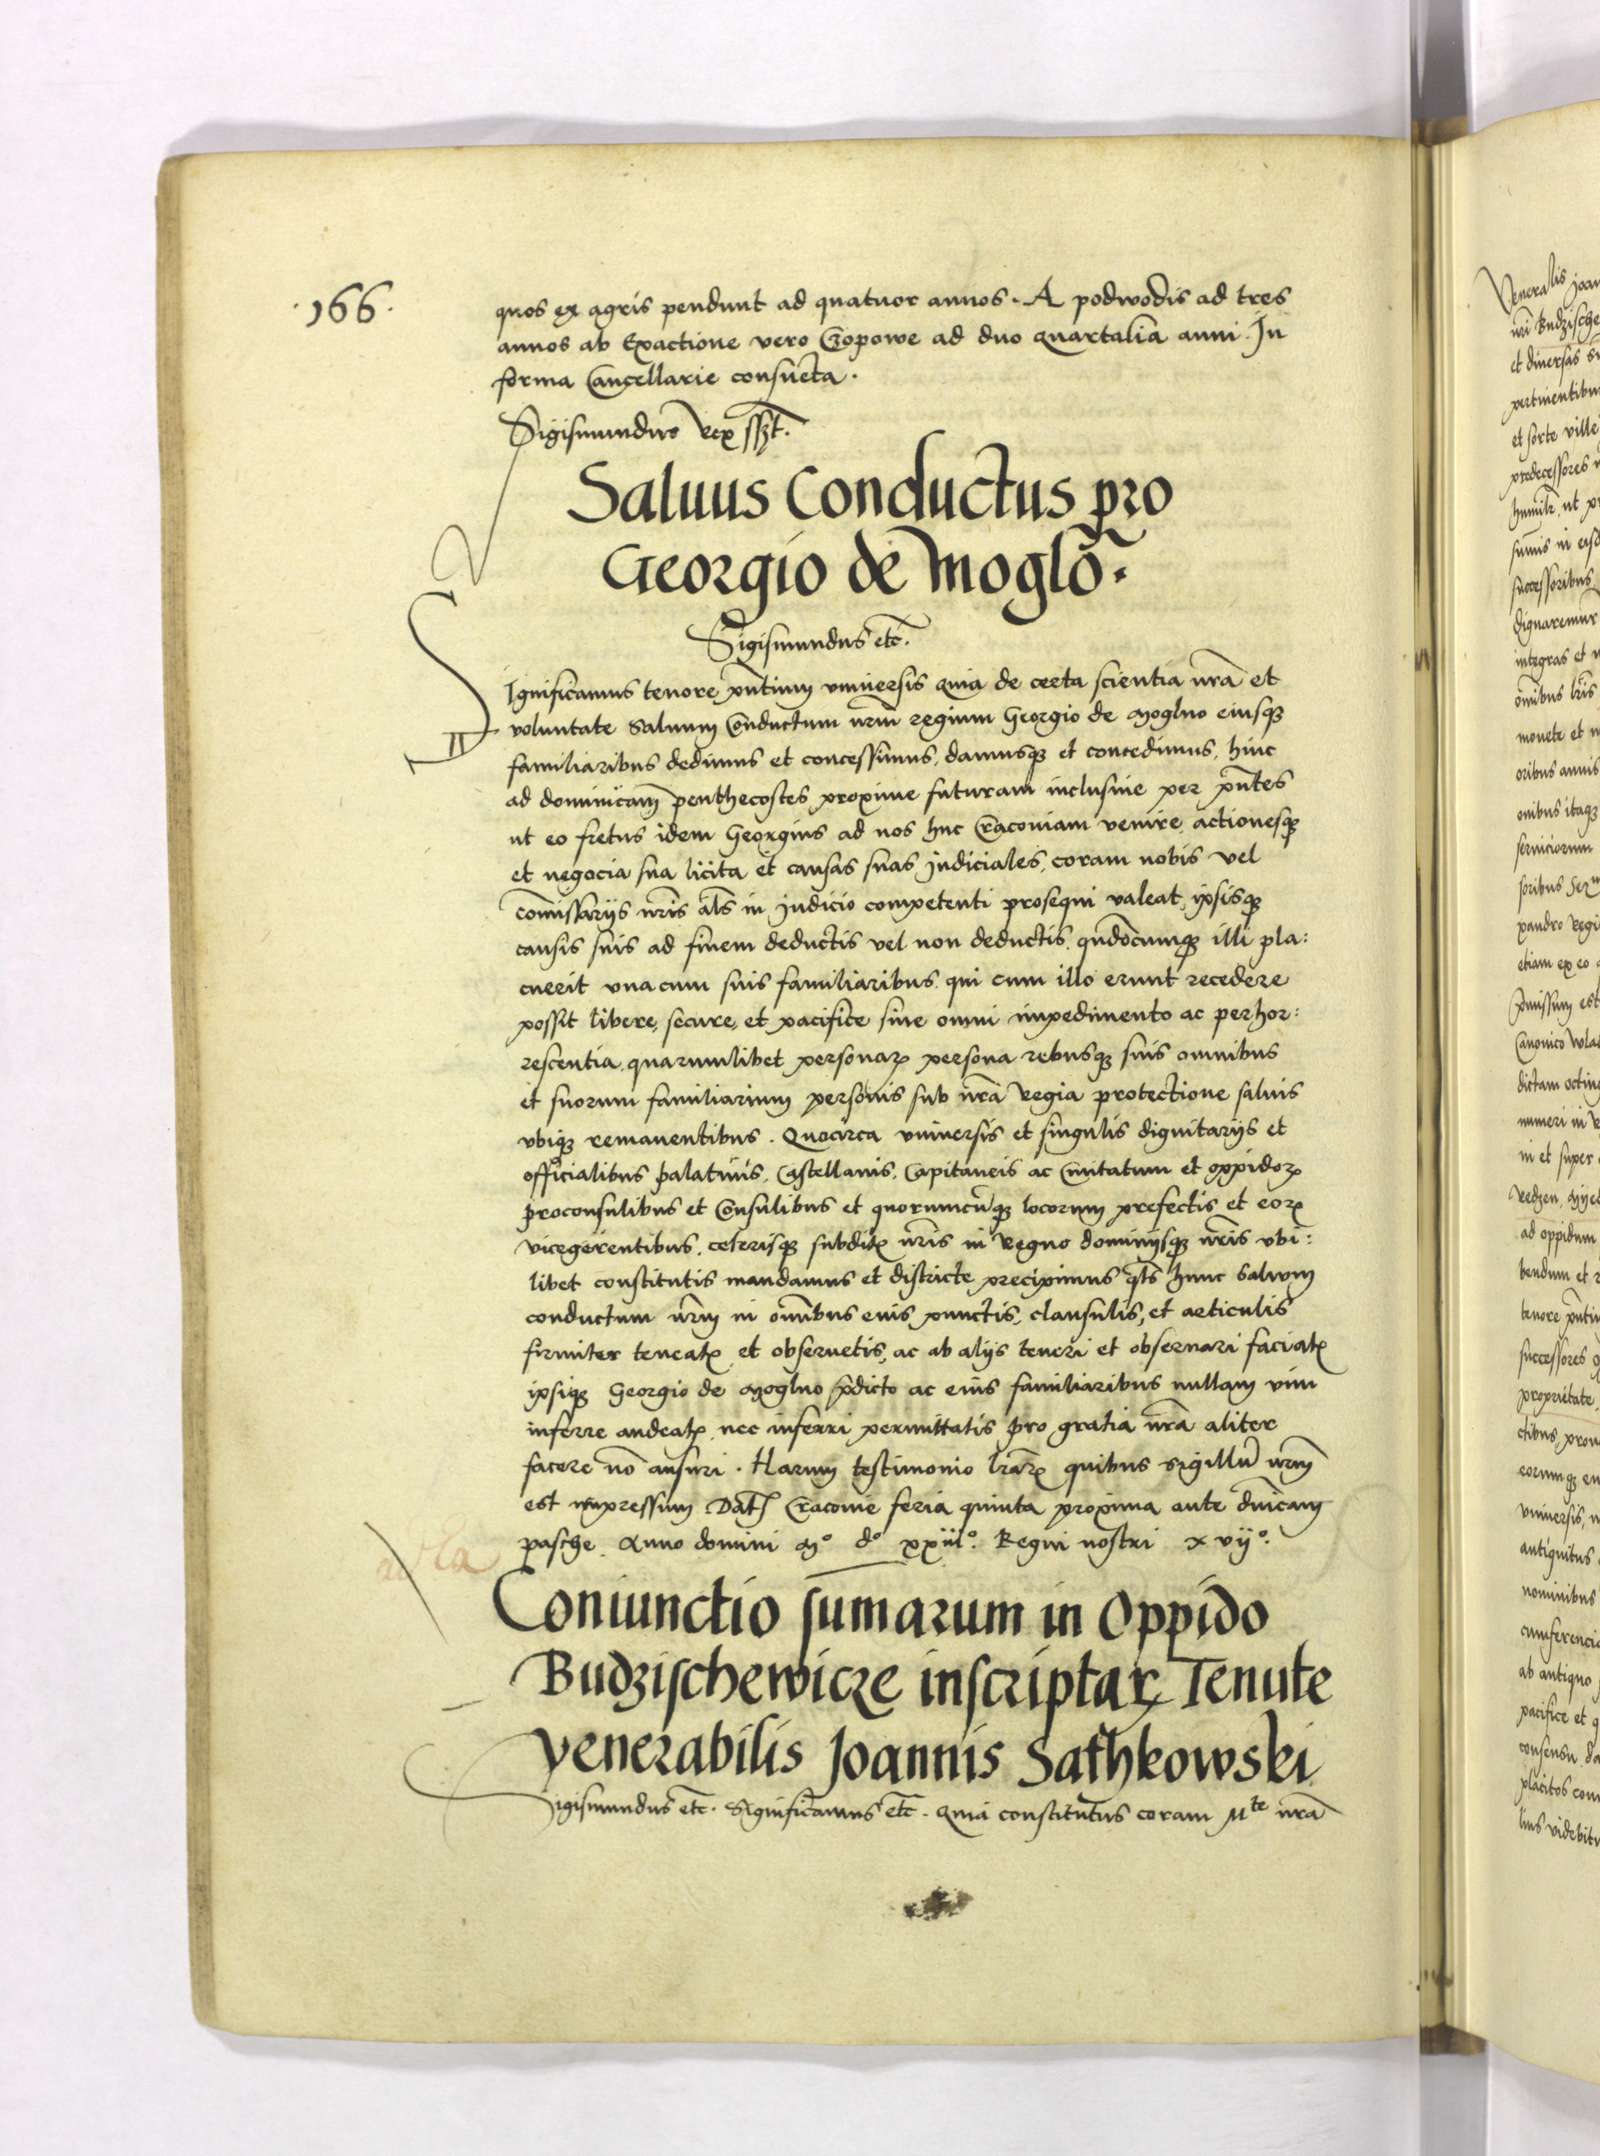 .166.
quos ex agris pendunt ad quatuor annos. A podwodis ad tres
annos ab Exactione vero Czopowe ad duo quartalia anni. In
forma Cancellarie consueta.
Sigismundus Rex sszt.
Saluus Conductus pro
Georgio de Moglō.
Sigismundus etc.
SIgnificamus tenore pñtium vniuersis quia de certa scientia nr̃a et
voluntate Saluum Conductum nr̃m regium Georgio de Mogluo eiusqꝫ
familiaribus dedimus et concessimus, damusqꝫ et concedimus, hinc
ad dominicam penthecostes proxime futuram inclusiue per pñtes
ut eo fretus idem Georgius ad nos huc Cracouiam venire, actionesqꝫ
et negocia sua licita et causas suas Judiciales, coram nobis vel
com̃issarijs nr̃is al̃s in Judicio competenti prosequi valeat, ipsisqꝫ
causis suis ad finem deductis vel non deductis, qñdocumqꝫ illi pla:
cuerit vna cum suis familiaribus, qui cum illo erunt recedere
possit libere, secure, et pacifice sine omni impedimento ac perhor:
rescentia quarumlibet personaꝝ persona rebusqꝫ suis omnibus
et suorum familiarium personis sub nr̃a Regia protectione saluis
vbiqꝫ remanentibus. Quocirca vniuersis et singulis dignitarijs et
officialibus palatinis, Castellanis, Capitaneis ac Ciuitatum et oppidoꝝ
proconsulibus et Consulibus et quorumcũqꝫ locorum prefectis et eoꝝ
vicegerentibus, ceterisqꝫ subditꝭ nr̃is in Regno dominijsqꝫ nr̃is vbi:
libet constitutis mandamus et districte precipimus q̃ts hunc Saluum
conductum nr̃m in om̃ibus eius punctis, clausulis, et articulis
firmiter teneatꝭ et obseruetis, ac ab alijs teneri et obseruari faciatꝭ
ipsiqꝫ Georgio de Mogluo p̃dicto ac eius familiaribus nullam vim
inferre audeatꝭ nec inferri permittatis pro gratia nr̃a aliter
facere nō ausuri. Harum testimonio lr̃aꝝ quibus sigillũ nr̃m
est impressum Datꝭ Cracouie feria quinta proxima ante dñicam
pasche Anno domini Mº dº xxiiiº. Regni nostri xvijº.
Coniunctio sum̃arum in Oppido
Budzischewicze inscriptaꝝ Tenute
Venerabilis Joannis Sathkowski
Sigismundus etc. Significamus etc. Quia constitutus coram Mte nr̃a